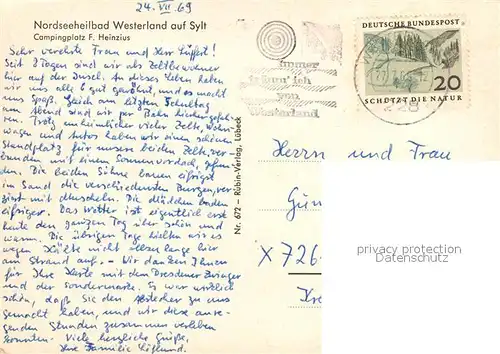 24. VII 69
Nordseeheilbad Westerland auf Sylt
Campingplatz F. Heinzius
Sehr verehrte Frau und Herr Lüffert!
Seit 3 Tagen sind wir als Zeltbewohner
hier auf der Insel. An dieses Leben haben
wir uns alle 6 gut gewöhnt, und es macht
uns Spaß. Gleich am letzten Schultag
am Abend sind wir per Bahn hierher gefah-
ren. Trotz unheimlicher vieler Zelte, Wohn-
wagen und Autos haben wir einen schönen
Standplatz für unsere beiden Zelte, ver-
bunden mit einem Sonnenvordach, gefun-
den. Die beiden Söhne bauen eifrigst
im Sand die verschiedensten Burgen, ver-
ziert mit Muscheln. Die Mädchen baden
eifriger. Das Wetter ist eigentlich erst
heute den ganzen Tag über schön und
warm. Die übrigen Tage hielten wir es
wegen Kälte nicht allzu lange hier
am Strand auf. – Wir danken Ihnen
für Ihre Karte mit dem Dresdener Zwinger
und der Sondermarke. Es war wirklich
schön, daß Sie den Abstecher zu uns
gemacht haben, und wir diese anre-
genden Stunden zusammen verleben
konnten. Viele herzliche Grüße,
Ihre Familie
Nr. 672 - Rubin-Verlag, Lübeck
immer
träum' ich
von
Westerland
DEUTSCHE BUNDESPOST
20
SCHÜTZT DIE NATUR
Herrn und Frau
Gün
X 726
Kre
privacy protection
Datenschutz